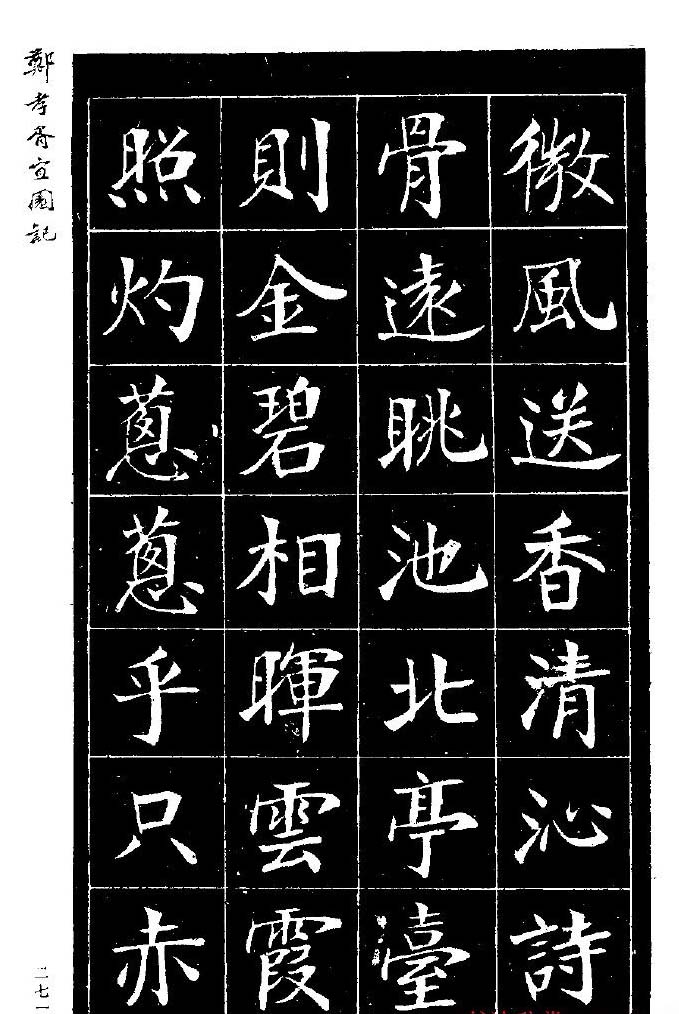 微風送香清沁詩
骨遠眺池北亭臺
則金碧相暉雲霞
照灼蔥蔥乎只赤
鄭孝胥宜園記
二七一